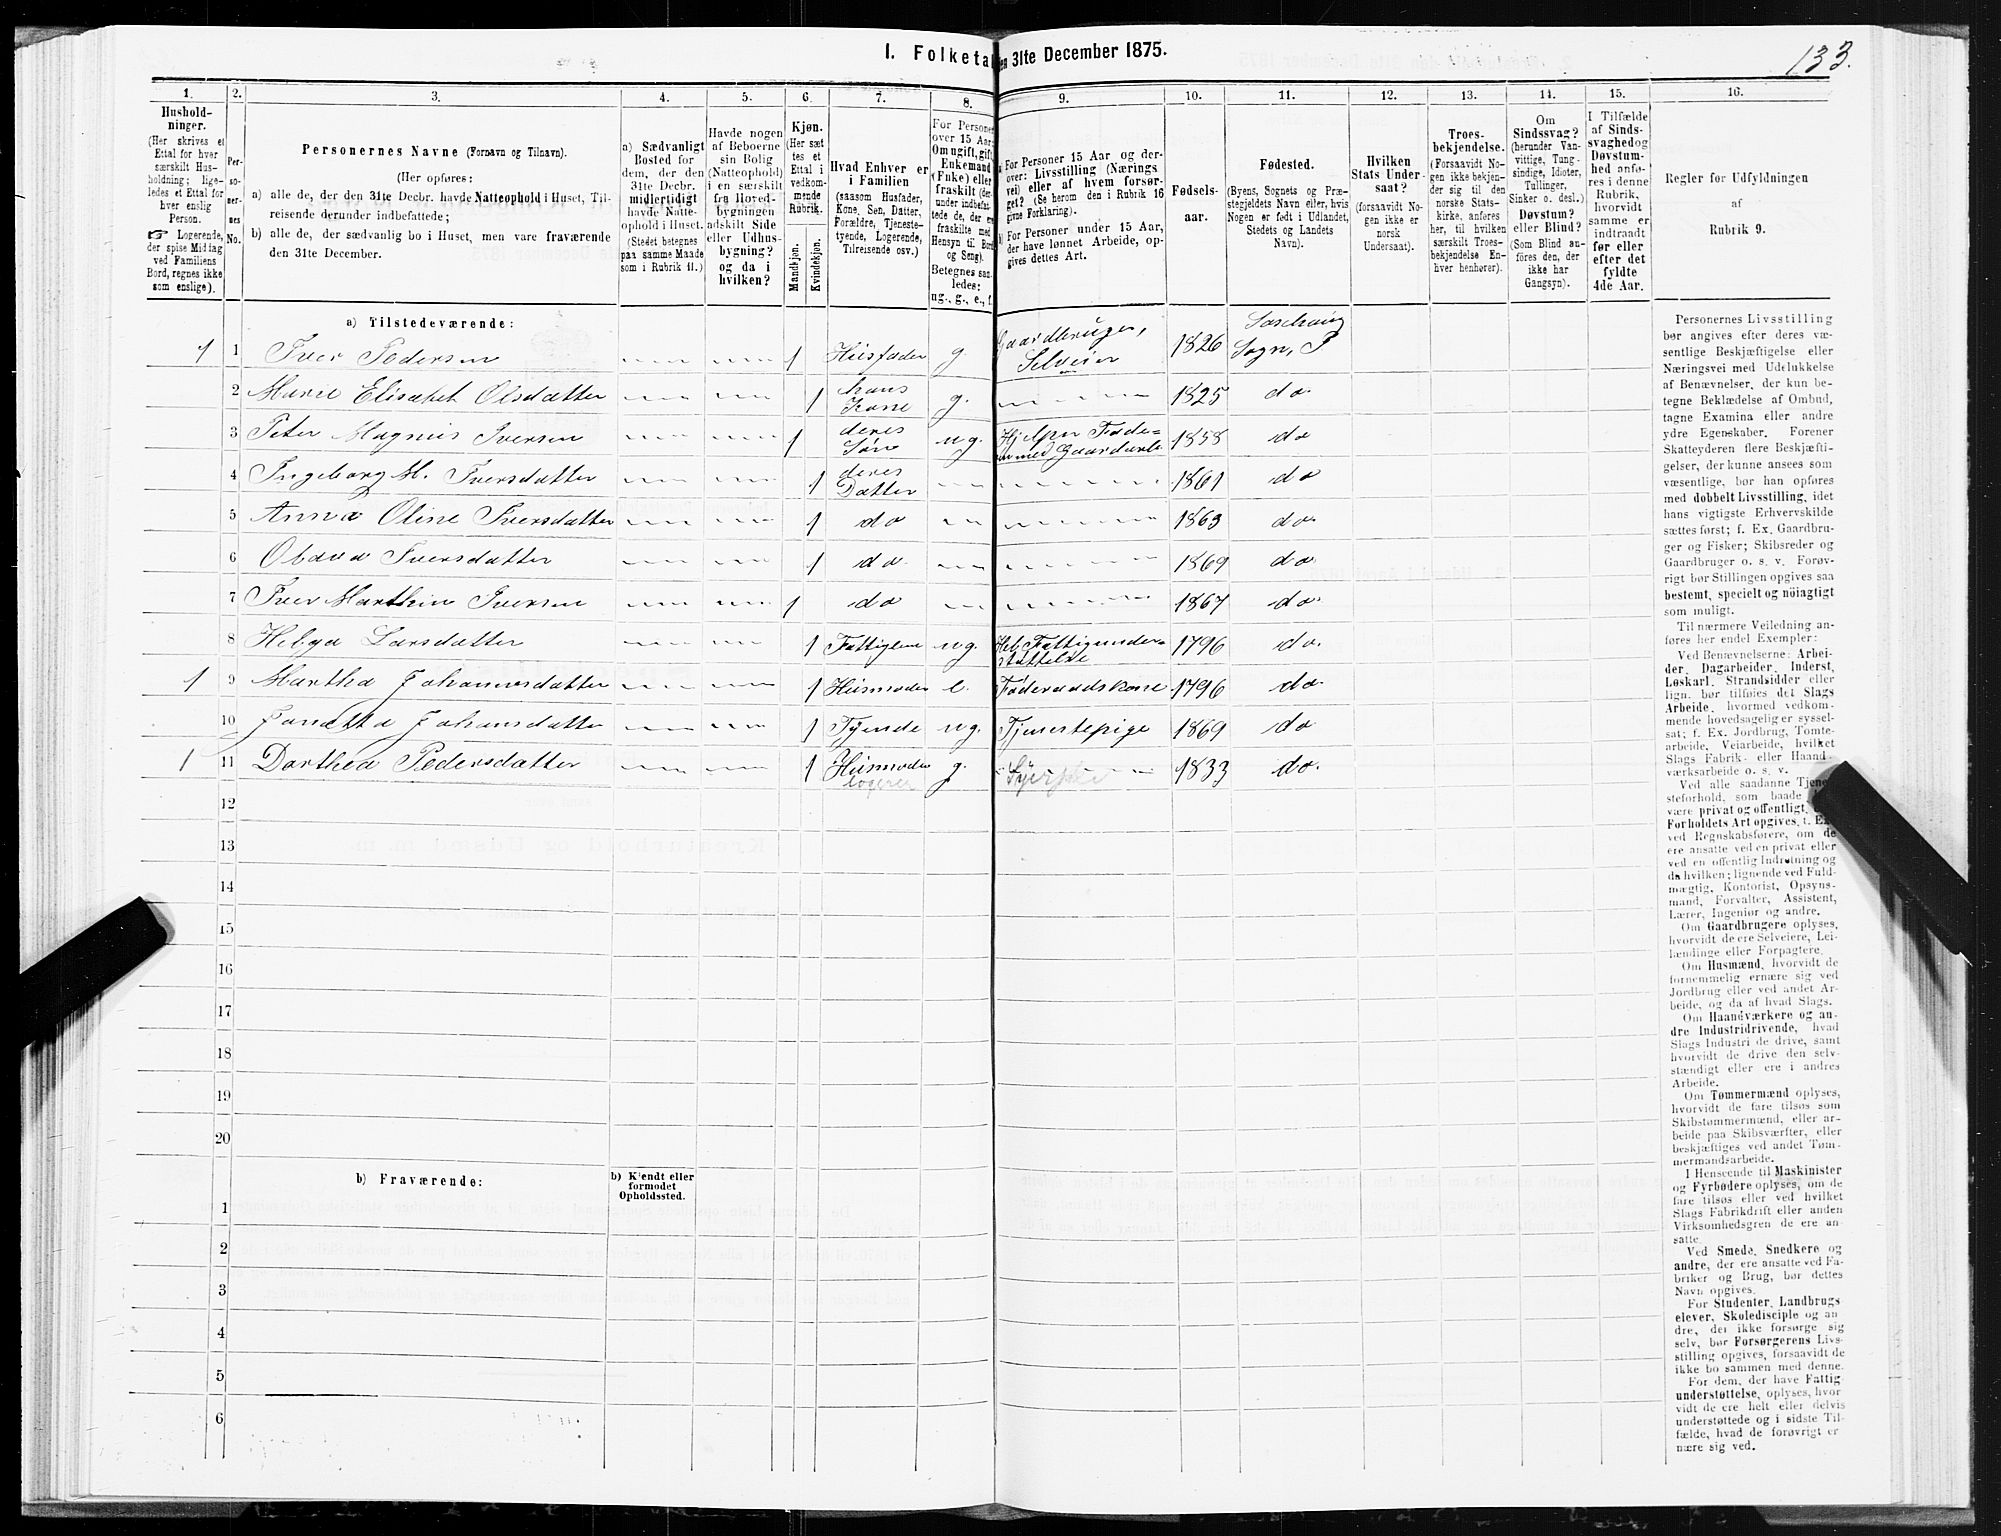 133.
I. Folketa en 31te December 1875.
1. 2. 3. 4. 5. 6. 7. 8. 9. 10. 11. 12. 13. 14. 15. 16.
Hushold-
ninger.
(Her skrives et
Ettal for hver
særskilt Hus-
holdning; lige-
ledes et Ettal for
hver enslig
Person.
☞ Logerende,
der spise Middag
ved Familiens
Bord, regnes ikke
som enslige).
Per-
so-
ner-
nes
No.
Personernes Navne (Fornavn og Tilnavn).
(Her opføres:
a) alle de, der den 31te Decbr. havde Natteophold i Huset, Til-
reisende derunder indbefattede;
b) alle de, der sædvanlig bo i Huset, men vare fraværende
den 31te December.
a) Sædvanligt
Bosted for
dem, der den
31te Decbr.
midlertidigt
havde Natte-
ophold i Huset.
(Stedet betegnes
paa samme Maade
som i Rubrik 11.)
Havde nogen
af Beboerne
sin Bolig
(Natteophold)
i en særskilt
fra Hoved-
bygningen
adskilt Side
eller Udhus-
bygning?
og da i
hvilken?
Kjøn.
(Her sæt
tes et
Ettal i
vedkom-
mende
Rubrik.
Mandkjøn.
Kvindekjøn.
Hvad Enhver er
i Familien
(saasom Husfader,
Kone, Søn, Datter,
Forældre, Tjeneste-
tyende, Logerende,
Tilreisende osv.)
For Personer
over 15 Aar:
Om ugift, gift,
Enkemand
(Fuke) eller
fraskilt (der-
under indbefat-
tede de, der ere
fraskilte med
Hensyn til Bord
og Seng).
Betegnes saa-
ledes:
ug., g., e., f.
a) For Personer 15 Aar og der-
over: Livsstilling (Nærings
vei) eller af hvem forsør-
get? (Se herom den i Rubrik 16
givne Forklaring).
b) For Personer under 15 Aar,
der have lønnet Arbeide, op-
gives dettes Art.
Fødsels-
aar.
Fødested.
(Byens, Sognets og Præ-
stegjeldets Navn eller, hvis
Nogen er født i Udlandet,
Stedets og Landets
Navn).
Hvilken
Stats Under-
saat?
(forsaavidt No-
gen ikke er
norsk
Undersaat).
Troes-
bekjendelse.
(Forsaavidt No-
gen ikke bekjen-
der sig til den
norske Stats-
kirke, anføres
her, til hvilken
særskilt Troes-
bekjendelse En-
hver henhører).
Om
Sindssvag?
(herunder Van-
vittige, Tung-
sindige, Idioter,
Tullinger,
Sinker o. desl.)
Døvstum?
eller Blind?
(Som Blind an-
føres den, der
ikke har
Gangsyn).
I Tilfælde
af Sinds-
svaghed og
Døvstum-
hed anfø-
res i denne
Rubrik,
hvorvidt
samme er
indtraadt
før eller
efter det
fyldte
4de Aar.
Regler for Udfyldningen
af
Rubrik 9.
a) Tilstedeværende:
1 1 Iver Pedersen 1 Husfader g. Gaardbruger, Selveier 1826 Sogn, P
2 Marie Elisabet Olsdatter 1 hans Kone g. 1825 do
3 Peter Magnus Iversen 1 deres Søn ug. Hjelper Fade= med Gaardarb. 1858 do
4 Ingeborg M. Iversdatter 1 deres Datter 1861 do
5 Anna Oline Iversdatter 1 do 1863 do.
6 Iversdatter 1 do. 1869 do.
7 Iver Marthin Iversen 1 do 1867 do.
8 Helga Larsdatter 1 ug. Fattigunder= støttelse 1796 do.
1 9 Martha Johannesdatter 1 Husmoder e. Føderaadskone 1796 do.
10 Johansdatter 1 Tyende ug. Tjenestepige 1869 do
1 11 Dorthea Pedersdatter 1 Husmoder logerer g. 1833 do.
12
13
14
15
16
17
18
19
20
b) Fraværende:
b) Kjendt eller
formodet
Opholdssted.
1
2
3
4
5
6
Personernes Livsstilling
bør angives efter deres væ-
sentlige Beskjæftigelse eller
Næringsvei med Udelukkelse
af Benævnelser, der kun be-
tegne Beklædelse af Ombud,
tagne Examina eller andre
ydre Egenskaber. Forener
Skatteyderen flere Beskjæfti-
gelser, der kunne ansees som
væsentlige, bør han opføres
med dobbelt Livsstilling, idet
hans vigtigste Erhvervskilde
sættes først; f. Ex. Gaardbru-
ger og Fisker; Skibsreder og
Gaardbruger o. s. v. Forøv-
rigt bør Stillingen opgives saa
bestemt, specielt og nöiagtigt
som muligt.
Til nærmere Veiledning an-
føres her endel Exempler:
Ved Benævnelserne: Arbei-
der, Dagarbeider, Inderst,
Løskarl, Strandsidder eller
lign. bør tilføies det Slags
Arbeide, hvormed vedkom-
mende hovedsagelig er syssel-
sat; f. Ex. Jordbrug, Tomte-
arbeide, Veiarbeide, hvilket
Slags Fabrik- eller Haand-
værksarbeide o. s. v.
Ved alle saadanne Tjene-
steforhold, som baade
være privat og offentligt,
Forholdets Art opgives, f. Ex.
ved Regnskabsførere, om de
ere ansatte ved en privat eller
ved en offentlig Indretning og
da hvilken; lignende ved Fuld-
mægtig, Kontorist, Opsyns-
mand, Forvalter, Assistent,
Lærer, Ingeniør og andre.
Om Gaardbrugere oplyses,
hvorvidt de ere Selveiere, Lei-
lændinge eller Forpagtere.
Om Husmænd, hvorvidt de
fornemmelig ernære sig ved
Jordbrug eller ved andet Ar-
beide, og da af hvad Slags.
Om Haandværkere og an-
dre Industridrivende, hvad
Slags Industri de drive, samt
hvorvidt de drive den selv-
stændigt eller ere i andres
Arbeide.
Om Tømmermænd oplyses,
hvorvidt de fare tilsøs som
Skibstømmermænd, eller ar-
beide paa Skibsværfter, eller
beskjæftiges ved andet Tøm-
mermandsarbeide.
I Henseende til Maskinister
og Fyrbødere oplyses, om de
fare tilsøs eller ved hvilket
Slags Fabrikdrift eller anden
Virksomhedsgren de ere an-
satte.
Ved Smede, Snedkere og
andre, der ere ansatte ved Fa-
briker og Brug, bør dettes
Navn opgives.
For Studenter, Landbrugs-
elever, Skoledisciple og an-
dre, der ikke forsørge sig
selv, bør Forsørgerens Livs-
stilling opgives, forsaavidt de
ikke bo sammen med denne.
For dem, der have Fattig-
understøttelse, oplyses, hvor
vidt de ere helt eller delvis
understøttede og i sidste Til-
fælde, hvad de forøvrigt er
nære sig ved.